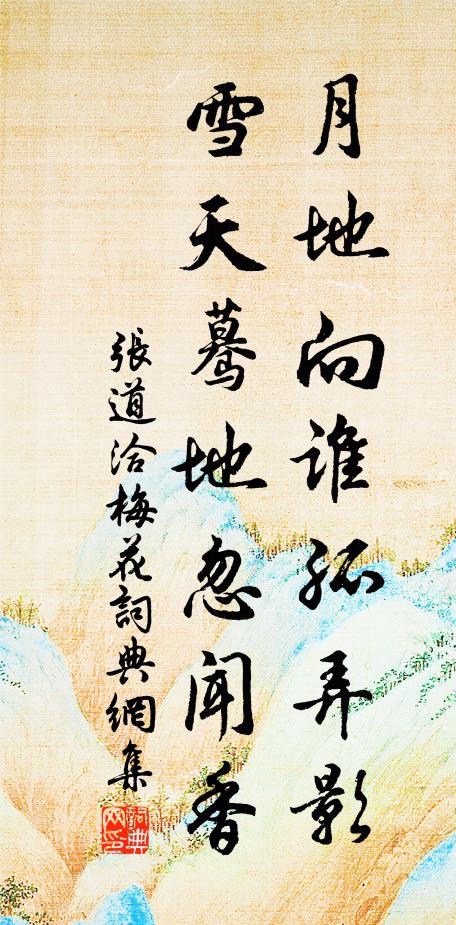 月地向誰孤弄影
雪天蓦地忽闻香
張道洽梅花詞典網集
詞典網印